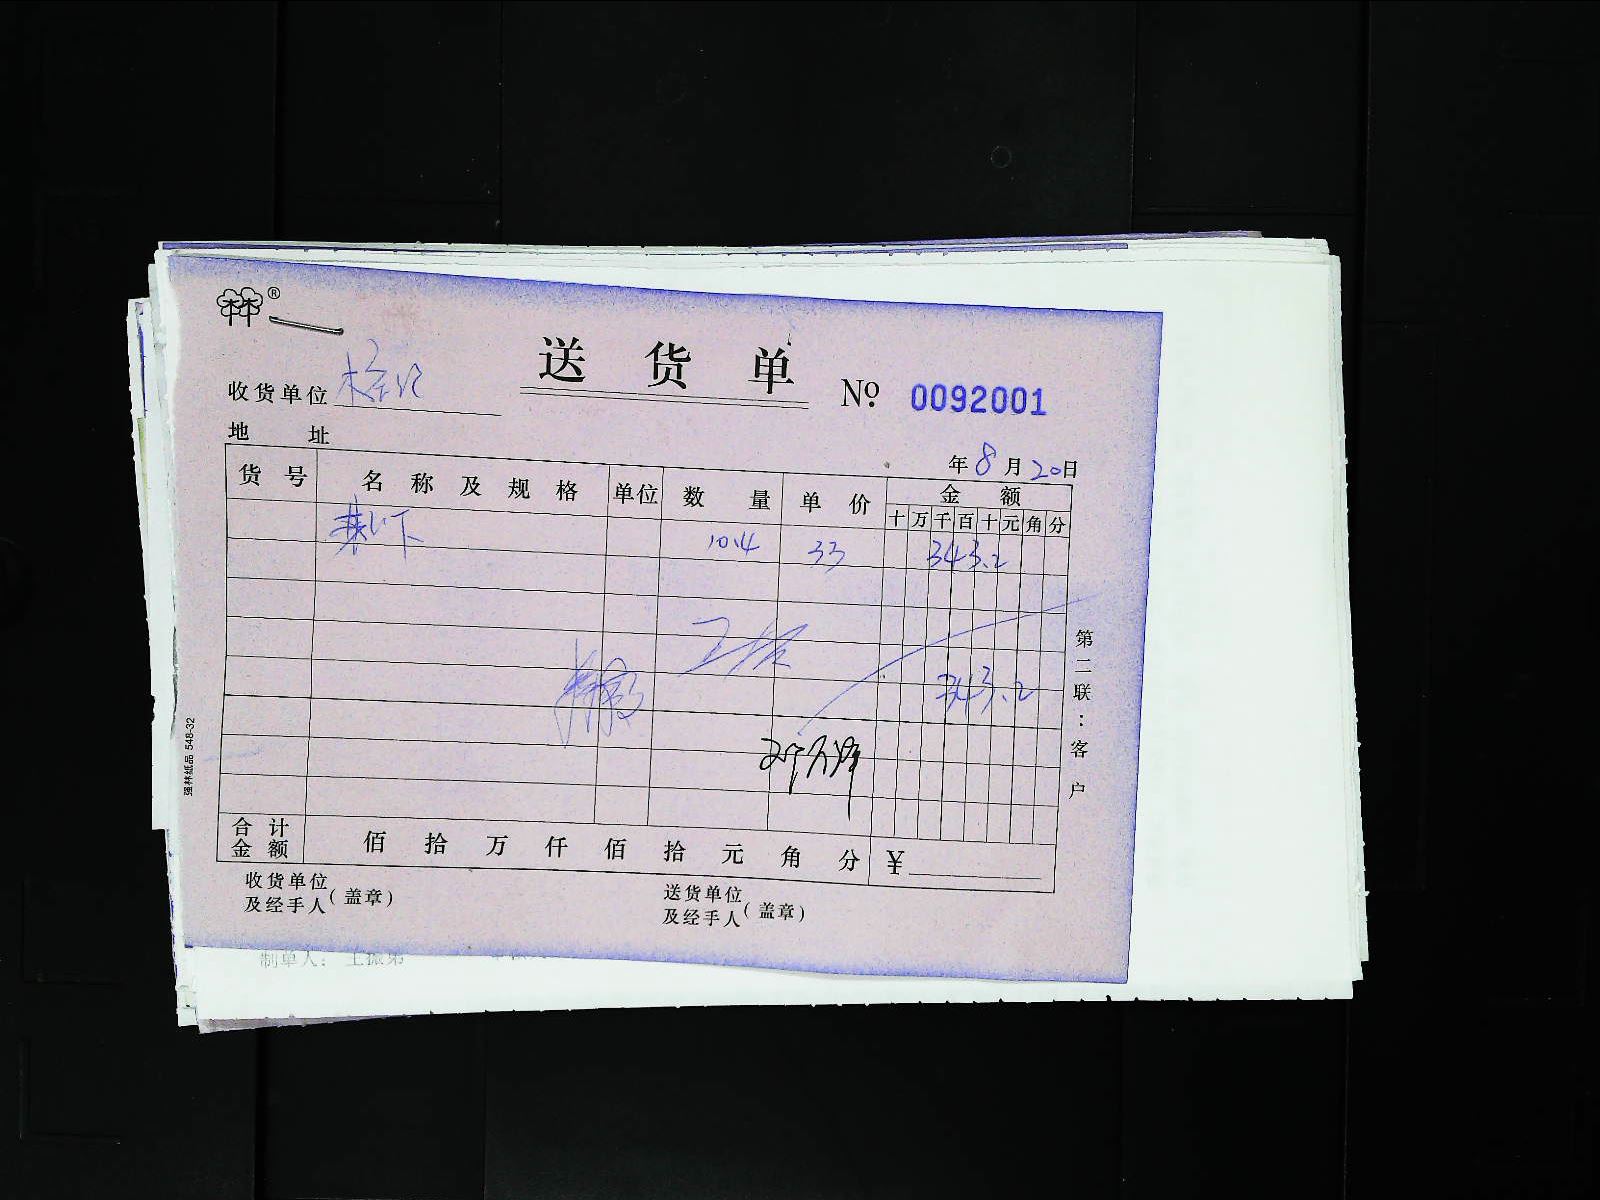 林®
送货单 № 0092001
收货单位
地址
年8月20日
货号 名称及规格 单位 数量 单价 金额
十万千百十元角分
10.4 33 343.2
343.2
合计金额 佰拾万仟佰拾元角分 ¥
收货单位及经手人(盖章) 送货单位及经手人(盖章)
第二联:客户
强林纸品 548-32
制单人: